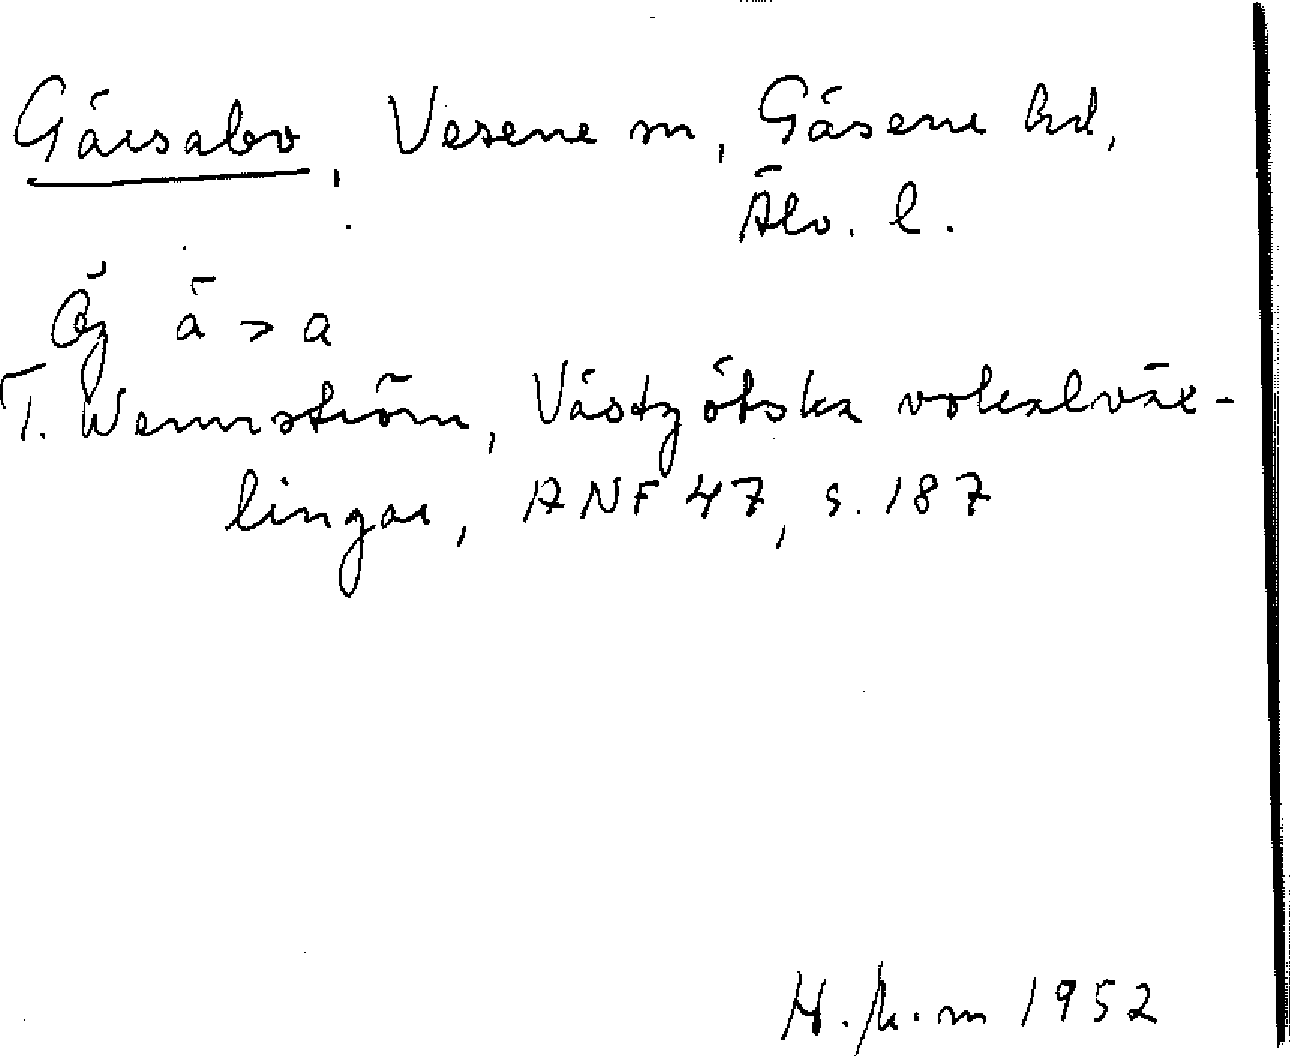 Gärsabo, Vesene sn, Gäsene hd,
Älv. l.
Og ä > a
T. Wennström, Västgötska vokalväx-
lingar, ANF 47, s. 187
1952